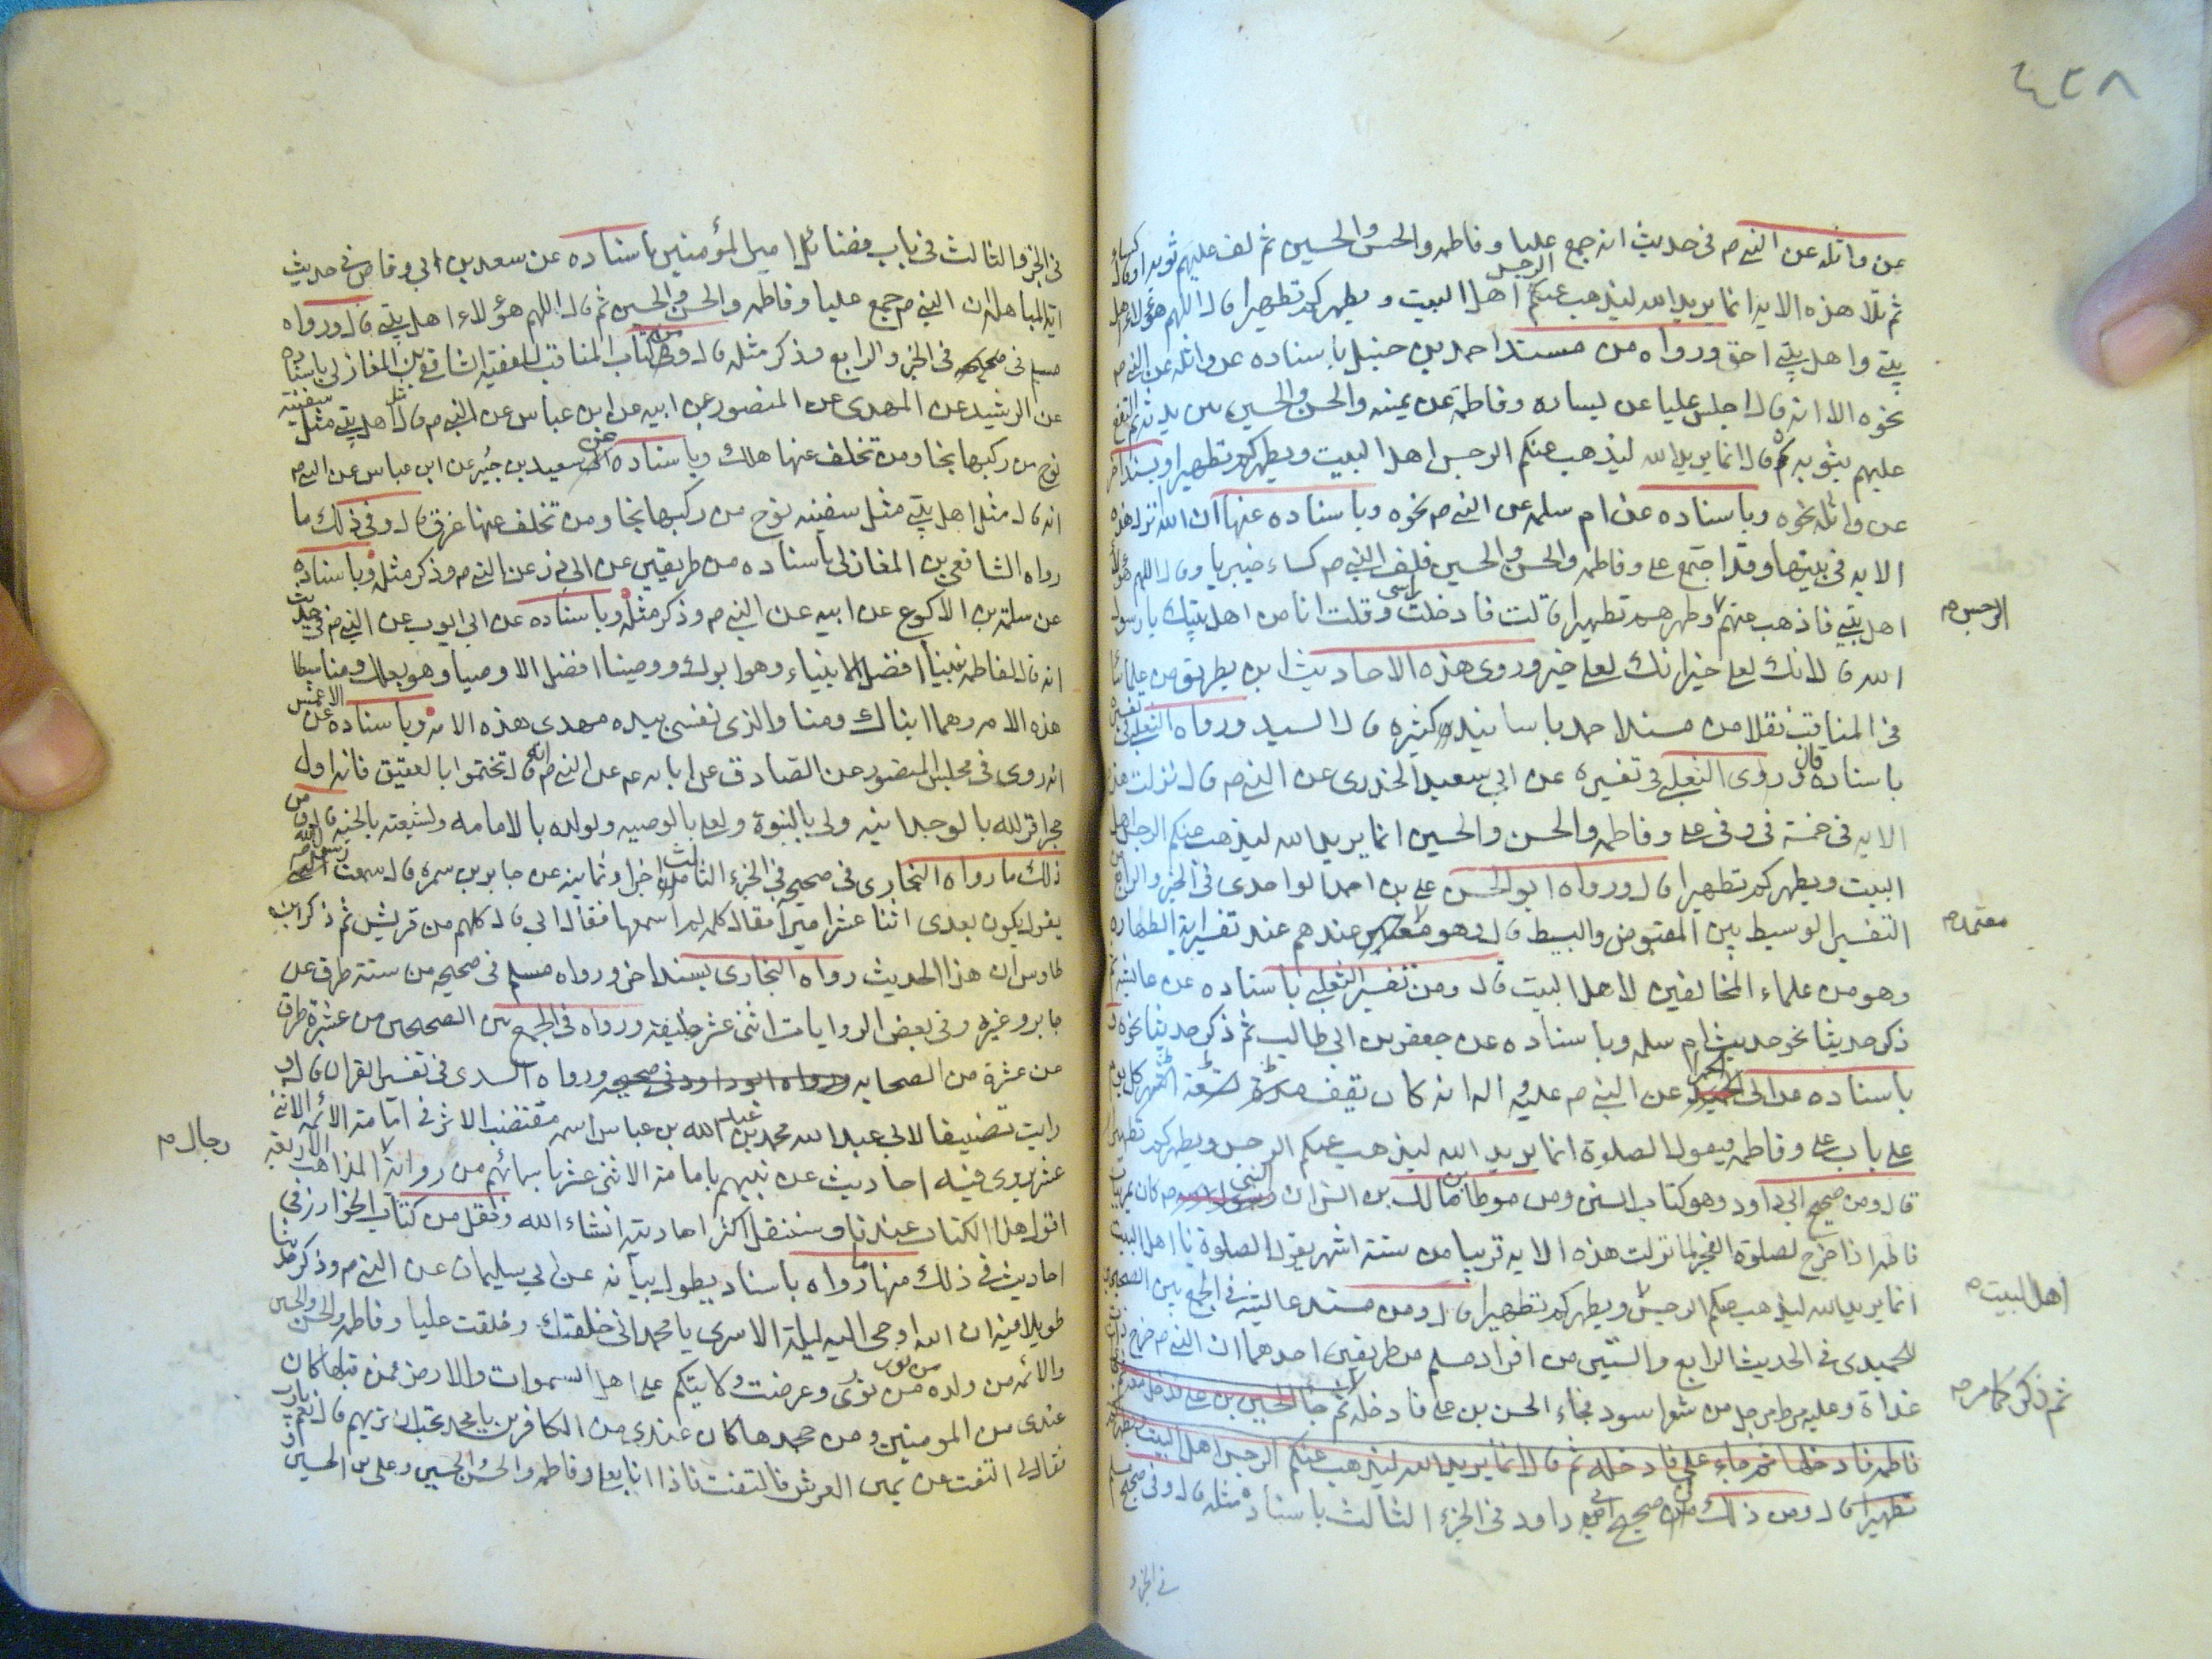 ٤٢٨
عن واثلة عن النبي ص في حديث انه جمع عليا و فاطمه والحسن والحسين ثم لف عليهم ثوبه او قال كساء
ثم تلا هذه الايه انما يريد الله ليذهب عنكم الرجس اهل البيت و يطهركم تطهيرا قال اللهم هؤلاء اهل
بيتي واهل بيتي احق ورواه من مسند احمد بن حنبل باسناده عن واثلة عن النبي ص
نحوه الا انه قال اجلس عليا عن يساره وفاطمة عن يمينه والحسن والحسين بين يديه ثم التفع
عليهم بثوبه وقال انما يريد الله ليذهب عنكم الرجس اهل البيت ويطهركم تطهيرا وبسند اخر
عن واثلة نحوه وباسناده عن ام سلمه عن النبي ص نحوه وباسناده عنها ان الله انزل هذه
الايه في بيتها وقد اجتمع علي وفاطمه والحسن والحسين فلف النبي ص كساء خيبريا وقال اللهم هؤلاء
اهل بيتي فاذهب عنهم وطهرهم تطهيرا قالت فادخلت راسي وقلت انا من اهل بيتك يا رسول
الرجس ص
الله قال انك لعلى خير انك لعلى خير وروى هذه الاحاديث ابن بطريق من علمائنا
في المناقب نقلا من مسند احمد باسانيد كثيره قال السيد ورواه الثعلبي في تفسيره
باسناده قال وروى الثعلبي في تفسيره عن ابي سعيد الخدري عن النبي ص قال نزلت هذه
الايه في خمسة في وفي علي وفاطمه والحسن والحسين انما يريد الله ليذهب عنكم الرجس اهل
البيت ويطهركم تطهيرا قال ورواه ابو الحسن علي بن احمد الواحدي في الجزء الرابع من
التفسير الوسيط بين المقبوض والبسيط قال وهو عندهم عند تفسير اية الطهاره
معتمد ص
وهو من علماء المخالفين لاهل البيت قال ومن تفسير الثعلبي باسناده عن عايشه
ذكر حديثا نحو حديث ام سلمه وباسناده عن جعفر بن ابي طالب ثم ذكر حديثا نحوه و
باسناده عن ابي الحمراء عن النبي ص عليه و اله انه كان يقف كل يوم
على باب علي وفاطمه فيقول الصلوة انما يريد الله ليذهب عنكم الرجس ويطهركم تطهيرا
قال ومن صحيح ابي داود وهو كتاب السنن ومن موطا مالك بن انس ان النبي ص كان يمر بباب
فاطمه اذا خرج لصلوة الفجر لما نزلت هذه الايه قريبا من ستة اشهر يقول الصلوة يا اهل البيت
انما يريد الله ليذهب عنكم الرجس ويطهركم تطهيرا قال ومن مسند عايشه في الجمع بين الصحيحين
اهل البيت ص
للحميدي في الحديث الرابع والستين من افراد مسلم من طريقين احدهما ان النبي ص خرج ذات
غداة وعليه مرط مرجل من شعر اسود فجاء الحسن بن علي فادخله ثم جاء الحسين بن علي فدخل معه ثم
ثم ذكر كما مر ص
فاطمه فادخلها ثم جاء علي فادخله ثم قال انما يريد الله ليذهب عنكم الرجس اهل البيت ويطهركم
تطهيرا قال ومن ذلك من صحيح ابي داود في الجزء الثالث باسناده مثله قال وفي صحيح مسلم
في الجزء
في الجزء الثالث في باب فضائل امير المؤمنين باسناده عن سعد بن ابي وقاص في حديث
اية المباهلة ان النبي ص جمع عليا وفاطمه والحسن والحسين ثم قال اللهم هؤلاء اهل بيتي قال ورواه
مسلم في صحيحه في الجزء الرابع وذكر مثله قال ومن كتاب المناقب للفقيه الشافعي بن المغازلي باسناده
عن الرشيد عن المهدي عن المنصور عن ابيه عن ابن عباس عن النبي ص قال مثل اهل بيتي مثل سفينة
نوح من ركبها نجا ومن تخلف عنها هلك وباسناده عن سعيد بن جبير عن ابن عباس عن النبي ص
انه قال مثل اهل بيتي مثل سفينه نوح من ركبها نجا ومن تخلف عنها غرق قال وفي ذلك ما
رواه الشافعي بن المغازلي باسناده من طريقين عن ابي ذر عن النبي ص وذكر مثله وباسناده
عن سلمة بن الاكوع عن ابيه عن النبي ص وذكر مثله وباسناده عن ابي ايوب عن النبي ص في حديث
انه قال لفاطمه نبينا افضل الانبياء وهو ابوك ووصينا افضل الاوصيا وهو بعلك ومنا سبطا
هذه الامه وهما ابناك ومنا والذي نفسي بيده مهدي هذه الامه وباسناده عن الاعمش
انه روى في مجلس المنصور عن الصادق عن ابائه عم عن النبي ص انه قال تختموا بالعقيق فانه اول
حجر اقر لله بالوحدانيه ولي بالنبوة ولعلي بالوصيه ولولده بالامامه ولشيعته بالجنه قال ومن
ذلك ما رواه البخاري في صحيحه في الجزء الثامن ثالث اجزاء ثمانيه عن جابر بن سمره قال سمعت رسول الله ص
يقول يكون بعدي اثنا عشر اميرا فقال كلمه لم اسمعها فقال ابي قال كلهم من قريش ثم ذكر ابن
طاوس ان هذا الحديث رواه البخاري بسند اخر ورواه مسلم في صحيحه من ستة طرق عن
جابر وغيره وفي بعض الروايات اثنى عشر خليفة ورواه في الجمع بين الصحيحين من عشرة طرق
من عشرة من الصحابه ورواه ابو داود في صحيحه ورواه السدي في تفسير القران قال و
رايت تصنيفا لابي عبد الله محمد بن عبد الله بن عباس اسمه مقتضب الاثر في امامة الائمه الاثني
عشر يروي فيه احاديث عن نبيهم بامامة الاثنى عشر باسمائهم من رواية المذاهب الاربعه
رجال ص
اقول هذا الكتاب عندنا وسننقل اكثر احاديثه انشاء الله ونقل من كتاب الخوارزمي
احاديث في ذلك منها ما رواه باسناد يطول بيانه عن ابي سليمان عن النبي ص وذكر حديثا
طويلا فيه ان الله اوحى اليه ليلة الاسرى يا محمد اني خلقتك وخلقت عليا وفاطمه والحسن والحسين
والائمه من ولده من نور من نوري وعرضت ولايتكم على اهل السموات والارض فمن قبلها كان
عندي من المومنين ومن جحدها كان عندي من الكافرين يا محمد تحب ان تريهم قال نعم يارب
فقال لي التفت عن يمين العرش فالتفت فاذا انا بعلي وفاطمه والحسن والحسين وعلي بن الحسين و